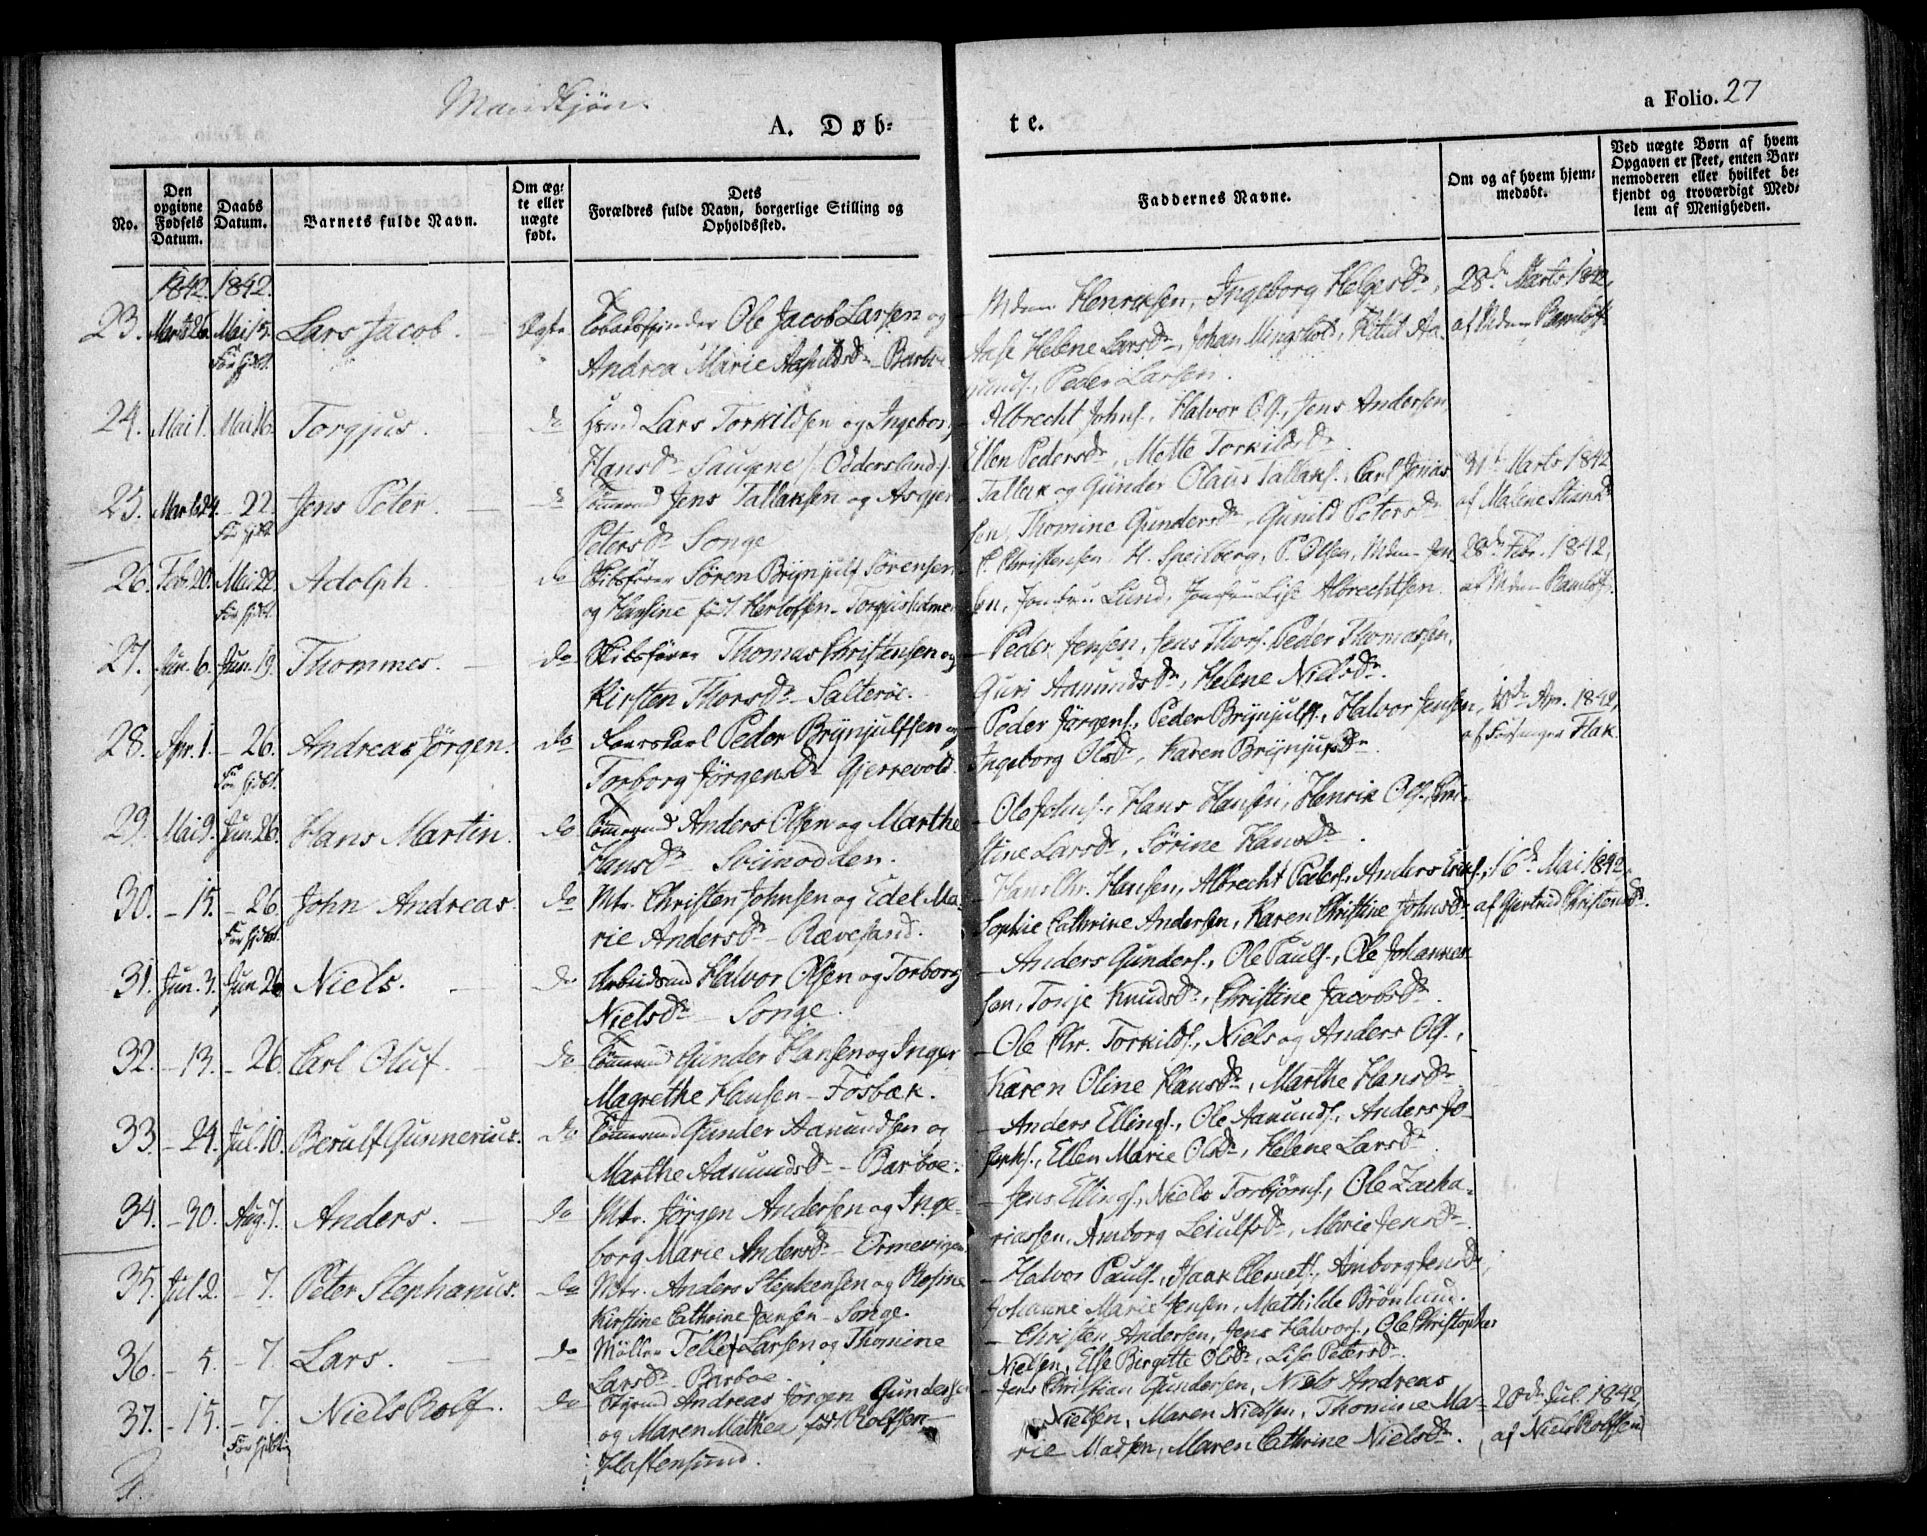 Mandkjøn.
a Folio. 27
A. Døb-
te.
No.
Den opgivne Fødsels Datum.
Daabs Datum.
Barnets fulde Navn.
Om ægte eller uægte født.
Dets
Forældres fulde Navn, borgerlige Stilling og
Opholdssted.
Faddernes Navne.
Om og af hvem hjem-
medøbt.
Ved uægte Børn af hvem
Opgaven er skeet, enten Bar-
nemoderen eller hvilket be-
kjendt og troværdigt Med-
lem af Menigheden.
1842. 1842.
23. Marts 26. Mai 5. Lars Jacob. Ægte Ole Jacob Larsen og
Andrea Marie Barboe
Mdm Henriksen, Ingeborg Helgesdr, 28de Marts 1842,
Aase Helene Larsdr, Johan
Peder Larsen.
24. Mai 1. Mai 16. Torgjus. do Lars Torkildsen og Ingeborg
Hansdr Saugene / Oddersland /.
Albrecht Johns., Halvor Ols., Jens Andersen,
Ellen Pedersdr, Mette Torkildsdr.
25. Marts 24. - 22. Jens Peter. do Jens Tallaksen og Asgjer
Petersdr Songe
Tallak og Gunder Olaus Tallaks., Carl Jonas- 31te Marts 1842
sen, Thomine Gundersdr Gunild Petersdr af Malene
26. Feb. 20. Mai 22. Adolph. do Skibsfører Søren Brynjulf Sørensen
og Hansine født Herlofsen - Torgjusholmen
C. Christensen, H. Speilberg, P. Olsen, Mdm Jen- 28de Febr. 1842,
sen, Jomfru Lund, Jomfru Lise Albrechtsen. af Mdm
27. 6. Jun. 19. Thommes. do Skibsfører Thomas Christensen og
Kirsten Thorsdr - Salterøe.
Peder Jensen, Jens Thors. Peder Thomassen,
Guri Aanundsdr, Helene Nielsdr.
28. Apr. 1. - 26. Andreas Jørgen. do Peder Brynjulfsen og
Torborg Jørgensdr Gjerrevold.
Peder Jørgens., Peder Brynjulfs., Halvor Jensen, Apr. 1842,
Ingeborg Olsdr, Karen Brynjulfsdr. af Forsanger Flak.
29. Mai 9. Jun. 26. Hans Martin. do Anders Olsen og Marthe
Hansdr - Sviinodden.
Ole Johns., Hans Hansen, Henrik Ols., Chri-
stine Larsdr, Sørine Hansdr.
30. - 15. - 26. John Andreas. do Mtr. Christen Johnsen og Edel Ma-
rie Andersdr - Rævesand.
Hans Chr. Hansen, Albrecht Peders., Anders Eriks., 16de Mai 1842,
Sophie Cathrine Andersen, Karen Christine Johnsdr af Gjertrud Christensdr.
31. Jun. 3. Jun 26 Niels. do Arbeidsmd Halvor Olsen og Torborg
Nielsdr - Songe.
Anders Gunders., Ole Pauls., Ole Johannes-
sen, Tonje Knudsdr, Christine Jacobsdr.
32. - 13. - 26. Carl Oluf. do Gunder Hansen og Inger
Magrethe Hansen - Fosbæk.
Ole Chr. Torkilds., Niels og Anders Ols.,
Karen Oline Hansdr, Marthe Hansdr
33. - 24. Jul. 10. Berulf Gunnerius. do Gunder Aanundsen og
Marthe Aanundsdr - Barboe.
Anders Ellings., Ole Aanunds., Anders Jo-
sephs., Ellen Marie Olsdr, Helene Larsdr.
34. - 30. Aug. 7. Anders. do Mtr. Jørgen Andersen og Inge-
borg Marie Andersdr - Ormevigen
Jens Ellings., Niels Torbjørns., Ole Zacha-
riassen, Amborg Leiulfsdr, Marie Jensdr.
35. Jul. 2. - 7. Peter Stephanus. do Mtr. Anders Stephensen og Rosine
Kirstine Cathrine Jensen - Songe.
Halvor Pauls., Isaak Clemets., Amborg Jensdr,
Johanne Marie Jensen, Mathilde Brønlund.
36. - 5. - 7. Lars. do Møller Tellef Larsen og Thomine
Larsdr - Barboe.
Christen Andersen, Jens Halvors., Ole Christopher
Nielsen, Else Birgitte Olsdr, Lise Petersdr.
37. - 15. - 7. Niels Rolf. do Andreas Jørgen Gundersen
og Maren Mathea født Rolfsen
Hastensund.
Jens Christian Gundersen, Niels Andreas
Nielsen, Maren Nielsen, Thomine Ma- 20de Jul. 1842,
rie Madsen, Maren Cathrine Nielsdr. af Niels Rolfsen